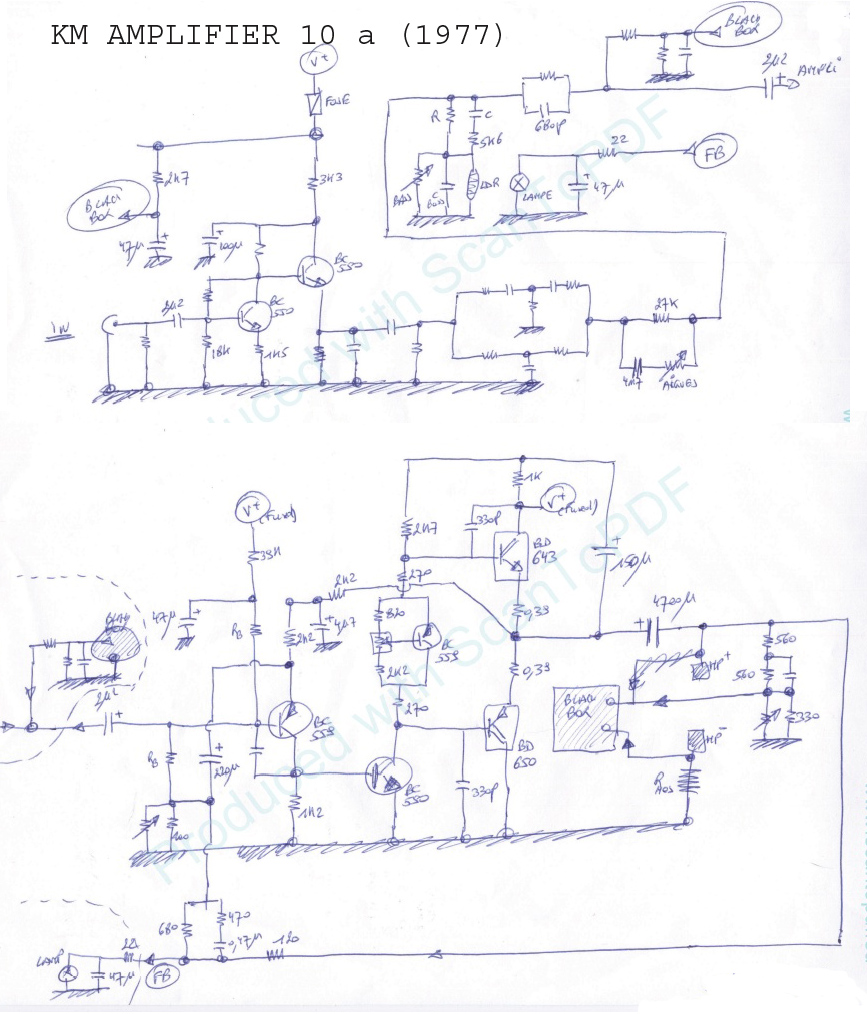 KM AMPLIFIER 10 a (1977)
BLACK BOX
V+
2µ2
AMPLI
FUSE
R
C
680p
5K6
22
FB
2k7
3k3
BLACK BOX
BAS
C
LDR
LAMPE
47µ
47µ
100µ
BC 550
2µ2
BC 550
27K
IN
18K
1k5
4k7
AIGUES
Produced with ScanToPDF
V+ (Fused)
1K
330p
V+ (Fused)
2k7
BD 643
150µ
2k2
270
BLACK BOX
47µ
820
0,33
4700µ
RB
2k2
4µ7
BC 559
560
HP+
2k2
0,33
560
2µ2
270
BLACK BOX
330
BC 559
BD 650
HP-
RB
220µ
BC 550
330p
R AOS
1k2
100
Produced with ScanToPDF
680
470
0,47µ
120
LAMP
22
47µ
FB